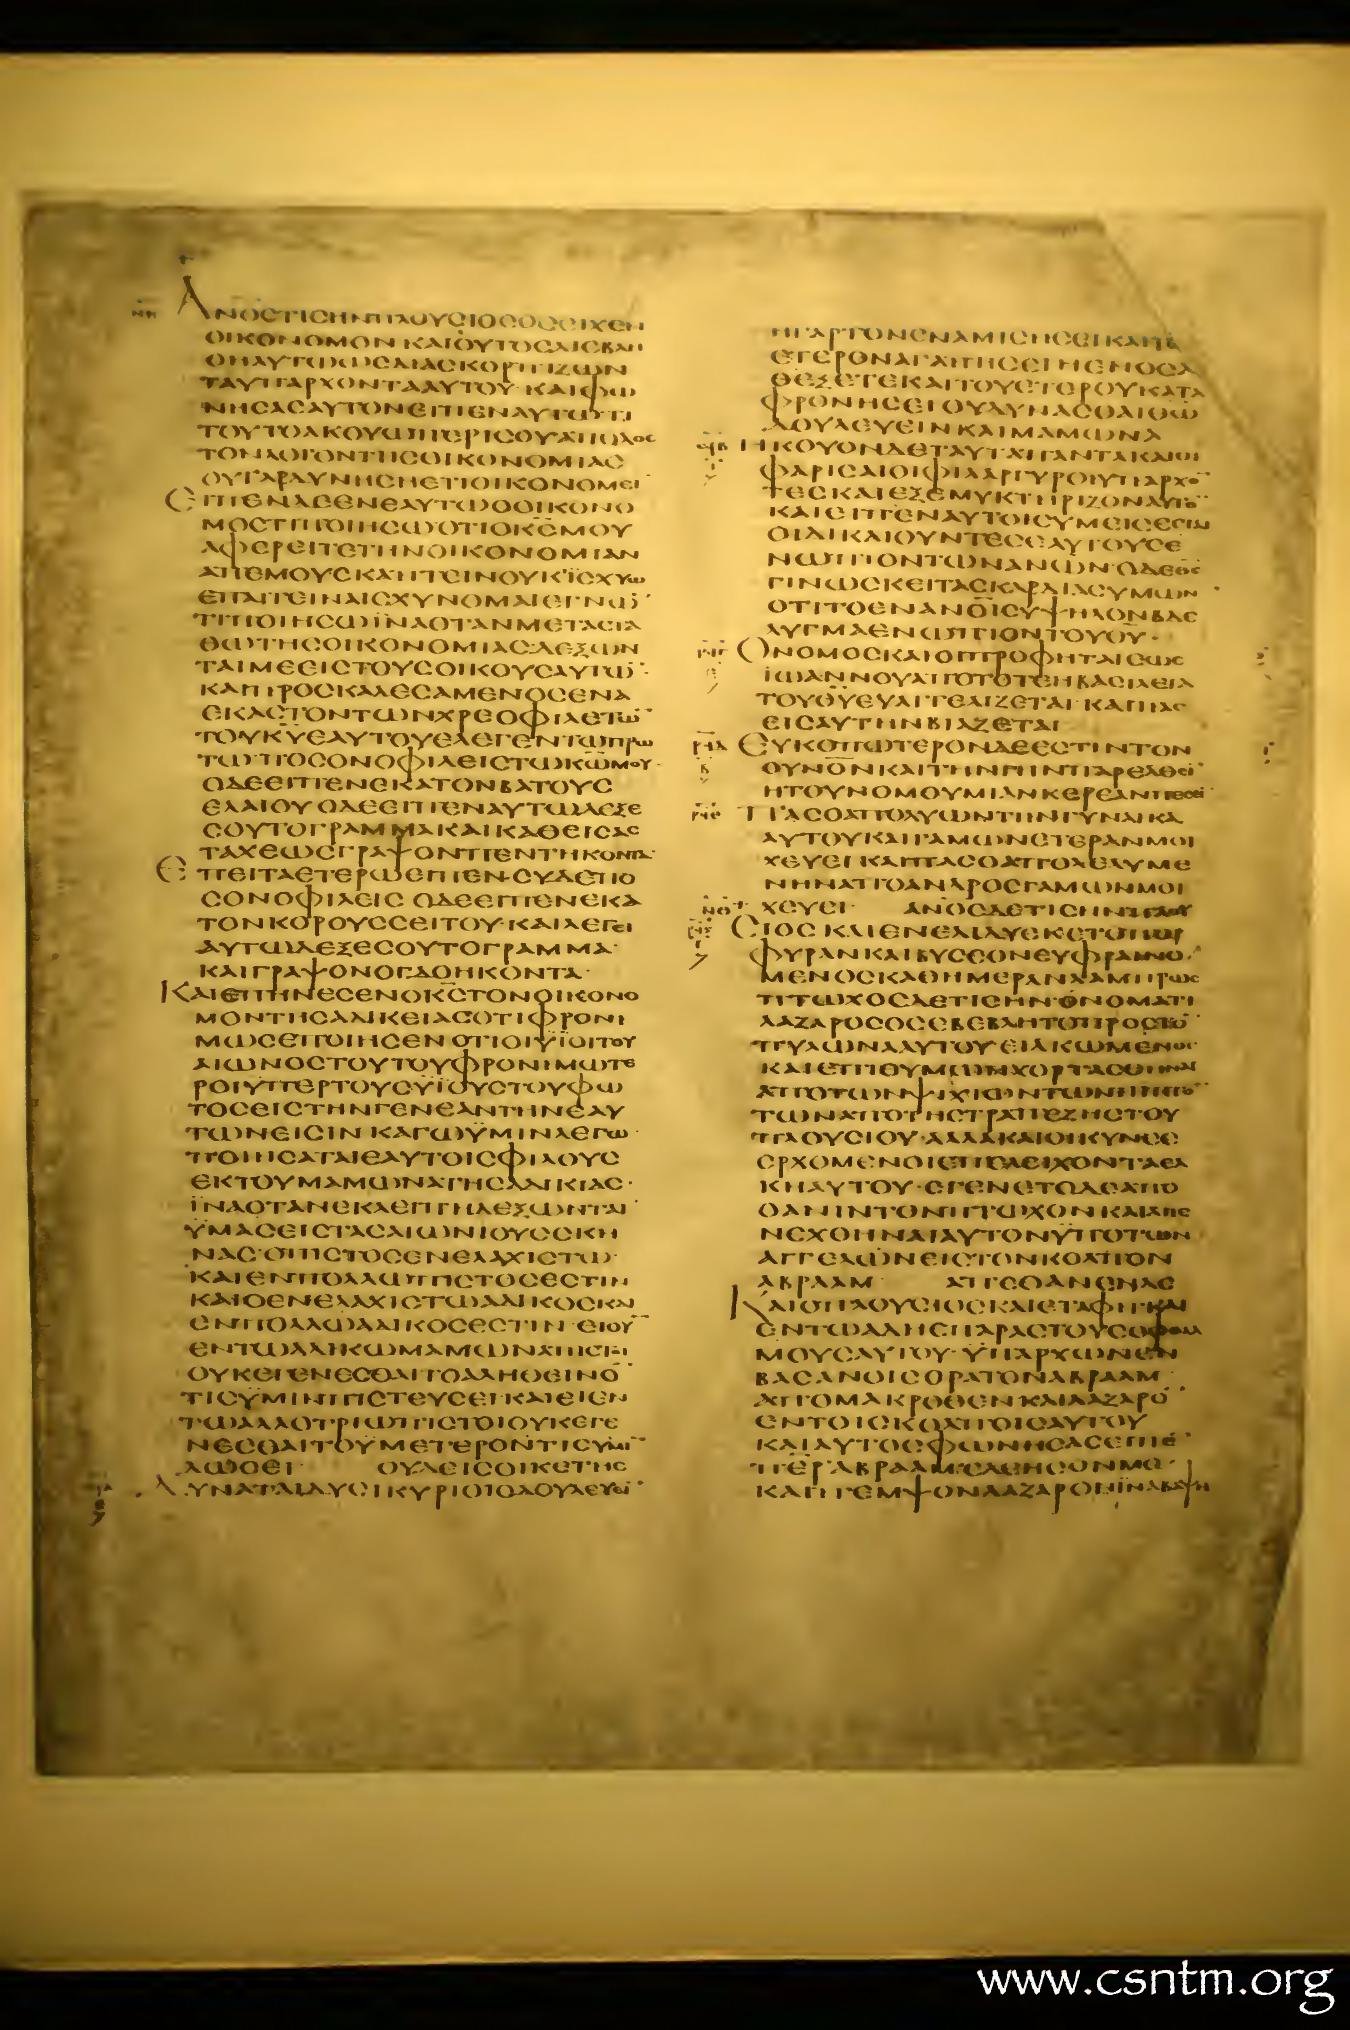 ΑΝΟΣΤΙΣΗΝΠΛΟΥΣΙΟΣΟΣΕΙΧΕΝ
ΟΙΚΟΝΟΜΟΝ ΚΑΙΟΥΤΟΣΔΙΕΒΛΗ
ΘΗΑΥΤΩΩΣΔΙΑΣΚΟΡΠΙΖΩΝ
ΤΑΥΠΑΡΧΟΝΤΑΑΥΤΟΥ ΚΑΙΦΩ
ΝΗΣΑΣΑΥΤΟΝΕΙΠΕΝΑΥΤΩΤΙ
ΤΟΥΤΟΑΚΟΥΩΠΕΡΙΣΟΥΑΠΟΔΟΣ
ΤΟΝΛΟΓΟΝΤΗΣΟΙΚΟΝΟΜΙΑΣ
ΟΥΓΑΡΔΥΝΗΣΗΕΤΙΟΙΚΟΝΟΜΕΙ
ΕΙΠΕΝΔΕΕΝΕΑΥΤΩΟΟΙΚΟΝΟ
ΜΟΣΤΙΠΟΙΗΣΩΟΤΙΟΚΣΜΟΥ
ΑΦΕΡΕΙΤΕΤΗΝΟΙΚΟΝΟΜΙΑΝ
ΑΠΕΜΟΥΣΚΑΠΤΕΙΝΟΥΚΪΣΧΥΩ
ΕΠΑΙΤΕΙΝΑΙΣΧΥΝΟΜΑΙΕΓΝΩ
ΤΙΠΟΙΗΣΩΪΝΑΟΤΑΝΜΕΤΑΣΤΑ
ΘΩΤΗΣΟΙΚΟΝΟΜΙΑΣΔΕΞΩΝ
ΤΑΙΜΕΕΙΣΤΟΥΣΟΙΚΟΥΣΑΥΤΩ
ΚΑΙΠΡΟΣΚΑΛΕΣΑΜΕΝΟΣΕΝΑ
ΕΚΑΣΤΟΝΤΩΝΧΡΕΟΦΙΛΕΤΩ
ΤΟΥΚΥΕΑΥΤΟΥΕΛΕΓΕΝΤΩΠΡΩ
ΤΩΠΟΣΟΝΟΦΙΛΕΙΣΤΩΚΩΜΟΥ
ΟΔΕΕΙΠΕΝΕΚΑΤΟΝΒΑΤΟΥΣ
ΕΛΑΙΟΥ ΟΔΕΕΙΠΕΝΑΥΤΩΔΕΞΕ
ΣΟΥΤΟΓΡΑΜΜΑΚΑΙΚΑΘΕΙΣΑΣ
ΤΑΧΕΩΣΓΡΑΨΟΝΠΕΝΤΗΚΟΝΤΑ
ΕΠΕΙΤΑΕΤΕΡΩΕΙΠΕΝ ΣΥΔΕΠΟ
ΣΟΝΟΦΙΛΕΙΣ ΟΔΕΕΙΠΕΝΕΚΑ
ΤΟΝΚΟΡΟΥΣΣΕΙΤΟΥ ΚΑΙΛΕΓΕΙ
ΑΥΤΩΔΕΞΕΣΟΥΤΟΓΡΑΜΜΑ
ΚΑΙΓΡΑΨΟΝΟΓΔΟΗΚΟΝΤΑ
ΚΑΙΕΠΗΝΕΣΕΝΟΚΣΤΟΝΟΙΚΟΝΟ
ΜΟΝΤΗΣΑΔΙΚΕΙΑΣΟΤΙΦΡΟΝΙ
ΜΩΣΕΠΟΙΗΣΕΝ ΟΤΙΟΙΥΪΟΙΤΟΥ
ΑΙΩΝΟΣΤΟΥΤΟΥΦΡΟΝΙΜΩΤΕ
ΡΟΙΫΠΕΡΤΟΥΣΥΪΟΥΣΤΟΥΦΩ
ΤΟΣΕΙΣΤΗΝΓΕΝΕΑΝΤΗΝΕΑΥ
ΤΩΝΕΙΣΙΝ ΚΑΓΩΫΜΙΝΛΕΓΩ
ΠΟΙΗΣΑΤΑΙΕΑΥΤΟΙΣΦΙΛΟΥΣ
ΕΚΤΟΥΜΑΜΩΝΑΤΗΣΑΔΙΚΙΑΣ
ΪΝΑΟΤΑΝΕΚΛΕΙΠΗΔΕΞΩΝΤΑΙ
ΫΜΑΣΕΙΣΤΑΣΑΙΩΝΙΟΥΣΣΚΗ
ΝΑΣ ΟΠΙΣΤΟΣΕΝΕΛΑΧΙΣΤΩ
ΚΑΙΕΝΠΟΛΛΩΠΙΣΤΟΣΕΣΤΙΝ
ΚΑΙΟΕΝΕΛΑΧΙΣΤΩΑΔΙΚΟΣΚΑΙ
ΕΝΠΟΛΛΩΑΔΙΚΟΣΕΣΤΙΝ ΕΙΟΥ
ΕΝΤΩΑΔΙΚΩΜΑΜΩΝΑΠΙΣΤΟΙ
ΟΥΚΕΓΕΝΕΣΘΑΙΤΟΑΛΗΘΕΙΝΟ
ΤΙΣΫΜΙΝΠΙΣΤΕΥΣΕΙ ΚΑΙΕΙΕΝ
ΤΩΑΛΛΟΤΡΙΩΠΙΣΤΟΙΟΥΚΕΓΕ
ΝΕΣΘΑΙΤΟΫΜΕΤΕΡΟΝΤΙΣΥΜΙ
ΔΩΣΕΙ ΟΥΔΕΙΣΟΙΚΕΤΗΣ
ΔΥΝΑΤΑΙΔΥΣΙΚΥΡΙΟΙΣΔΟΥΛΕΥΕΙ
ΗΓΑΡΤΟΝΕΝΑΜΙΣΗΣΕΙΚΑΙΤΟ
ΕΤΕΡΟΝΑΓΑΠΗΣΕΙΗΕΝΟΣΑ
ΘΕΞΕΤΕΚΑΙΤΟΥΕΤΕΡΟΥΚΑΤΑ
ΦΡΟΝΗΣΕΙ ΟΥΔΥΝΑΣΘΑΙΘΩ
ΔΟΥΛΕΥΕΙΝΚΑΙΜΑΜΩΝΑ
ΗΚΟΥΟΝΔΕΤΑΥΤΑΠΑΝΤΑΚΑΙΟΙ
ΦΑΡΙΣΑΙΟΙΦΙΛΑΡΓΥΡΟΙΥΠΑΡΧΟ
ΤΕΣΚΑΙΕΞΕΜΥΚΤΗΡΙΖΟΝΑΥΤΟ
ΚΑΙΕΙΠΕΝΑΥΤΟΙΣΥΜΕΙΣΕΣΤΑΙ
ΟΙΔΙΚΑΙΟΥΝΤΕΣΕΑΥΤΟΥΣΕ
ΝΩΠΙΟΝΤΩΝΑΝΩΝ ΟΔΕΘΣ
ΓΙΝΩΣΚΕΙΤΑΣΚΑΡΔΙΑΣΥΜΩΝ
ΟΤΙΤΟΕΝΑΝΟΙΣΥΨΗΛΟΝΒΔΕ
ΛΥΓΜΑΕΝΩΠΙΟΝΤΟΥΘΥ
ΟΝΟΜΟΣΚΑΙΟΙΠΡΟΦΗΤΑΙΕΩΣ
ΪΩΑΝΝΟΥΑΠΟΤΟΤΕΗΒΑΣΙΛΕΙΑ
ΤΟΥΘΥΕΥΑΓΓΕΛΙΖΕΤΑΙ ΚΑΙΠΑΣ
ΕΙΣΑΥΤΗΝΒΙΑΖΕΤΑΙ
ΕΥΚΟΠΩΤΕΡΟΝΔΕΕΣΤΙΝΤΟΝ
ΟΥΝΟΝΚΑΙΤΗΝΓΗΝΠΑΡΕΛΘΕΙ
ΗΤΟΥΝΟΜΟΥΜΙΑΝΚΕΡΕΑΝΠΕΣΕΙ
ΠΑΣΟΑΠΟΛΥΩΝΤΗΝΓΥΝΑΙΚΑ
ΑΥΤΟΥΚΑΙΓΑΜΩΝΕΤΕΡΑΝΜΟΙ
ΧΕΥΕΙ ΚΑΙΠΑΣΟΑΠΟΛΕΛΥΜΕ
ΝΗΝΑΠΟΑΝΔΡΟΣΓΑΜΩΝΜΟΙ
ΧΕΥΕΙ ΑΝΟΣΔΕΤΙΣΗΝΠΛΟΥ
ΣΙΟΣ ΚΑΙΕΝΕΔΙΔΥΣΚΕΤΟΠΟΡ
ΦΥΡΑΝΚΑΙΒΥΣΣΟΝΕΥΦΡΑΙΝΟ
ΜΕΝΟΣΚΑΘΗΜΕΡΑΝΛΑΜΠΡΩΣ
ΠΤΩΧΟΣΔΕΤΙΣΗΝ ΟΝΟΜΑΤΙ
ΛΑΖΑΡΟΣΟΣΕΒΕΒΛΗΤΟΠΡΟΣΤΟ
ΠΥΛΩΝΑΑΥΤΟΥ ΕΙΛΚΩΜΕΝΟΣ
ΚΑΙΕΠΙΘΥΜΩΝΧΟΡΤΑΣΘΗΝΑΙ
ΑΠΟΤΩΝΨΙΧΙΩΝΤΩΝΠΙΠΤΟ
ΤΩΝΑΠΟΤΗΣΤΡΑΠΕΖΗΣΤΟΥ
ΠΛΟΥΣΙΟΥ ΑΛΛΑΚΑΙΟΙΚΥΝΕΣ
ΕΡΧΟΜΕΝΟΙΕΠΕΛΕΙΧΟΝΤΑΕΛ
ΚΗΑΥΤΟΥ ΕΓΕΝΕΤΟΔΕΑΠΟ
ΘΑΝΙΝΤΟΝΠΤΩΧΟΝΚΑΙΑΠΕ
ΝΕΧΘΗΝΑΙΑΥΤΟΝΫΠΟΤΩΝ
ΑΓΓΕΛΩΝΕΙΣΤΟΝΚΟΛΠΟΝ
ΑΒΡΑΑΜ ΑΠΕΘΑΝΕΝΔΕ
ΚΑΙΟΠΛΟΥΣΙΟΣΚΑΙΕΤΑΦΗ ΚΑΙ
ΕΝΤΩΑΔΗΕΠΑΡΑΣΤΟΥΣΟΦΘΑΛ
ΜΟΥΣΑΥΤΟΥ ΫΠΑΡΧΩΝΕΝ
ΒΑΣΑΝΟΙΣΟΡΑΤΟΝΑΒΡΑΑΜ
ΑΠΟΜΑΚΡΟΘΕΝΚΑΙΛΑΖΑΡΟ
ΕΝΤΟΙΣΚΟΛΠΟΙΣΑΥΤΟΥ
ΚΑΙΑΥΤΟΣΦΩΝΗΣΑΣΕΙΠΕ
ΠΕΡΑΒΡΑΑΜΕΛΕΗΣΟΝΜΕ
ΚΑΙΠΕΜΨΟΝΛΑΖΑΡΟΝΪΝΑΒΑΨΗ
www.csntm.org